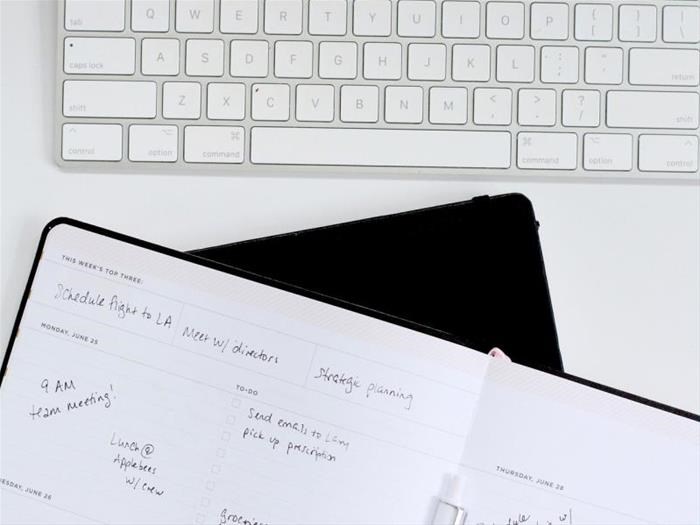 tab Q W E R T Y U I O P { [ } ] | \
caps lock A S D F G H J K L : ; " ' return
shift Z X C V B N M < , > . ? / shift
^ control ⌥ option ⌘ command ⌘ command ⌥ option ^ control
THIS WEEK'S TOP THREE:
Schedule flight to LA
Meet w/ directors
Strategic planning
MONDAY, JUNE 25
9 AM
team meeting!
Lunch @
Applebees
w/ crew
TO-DO
Send emails to Lam
pick up prescription
groceries
JUNE 26
THURSDAY, JUNE 28
w/